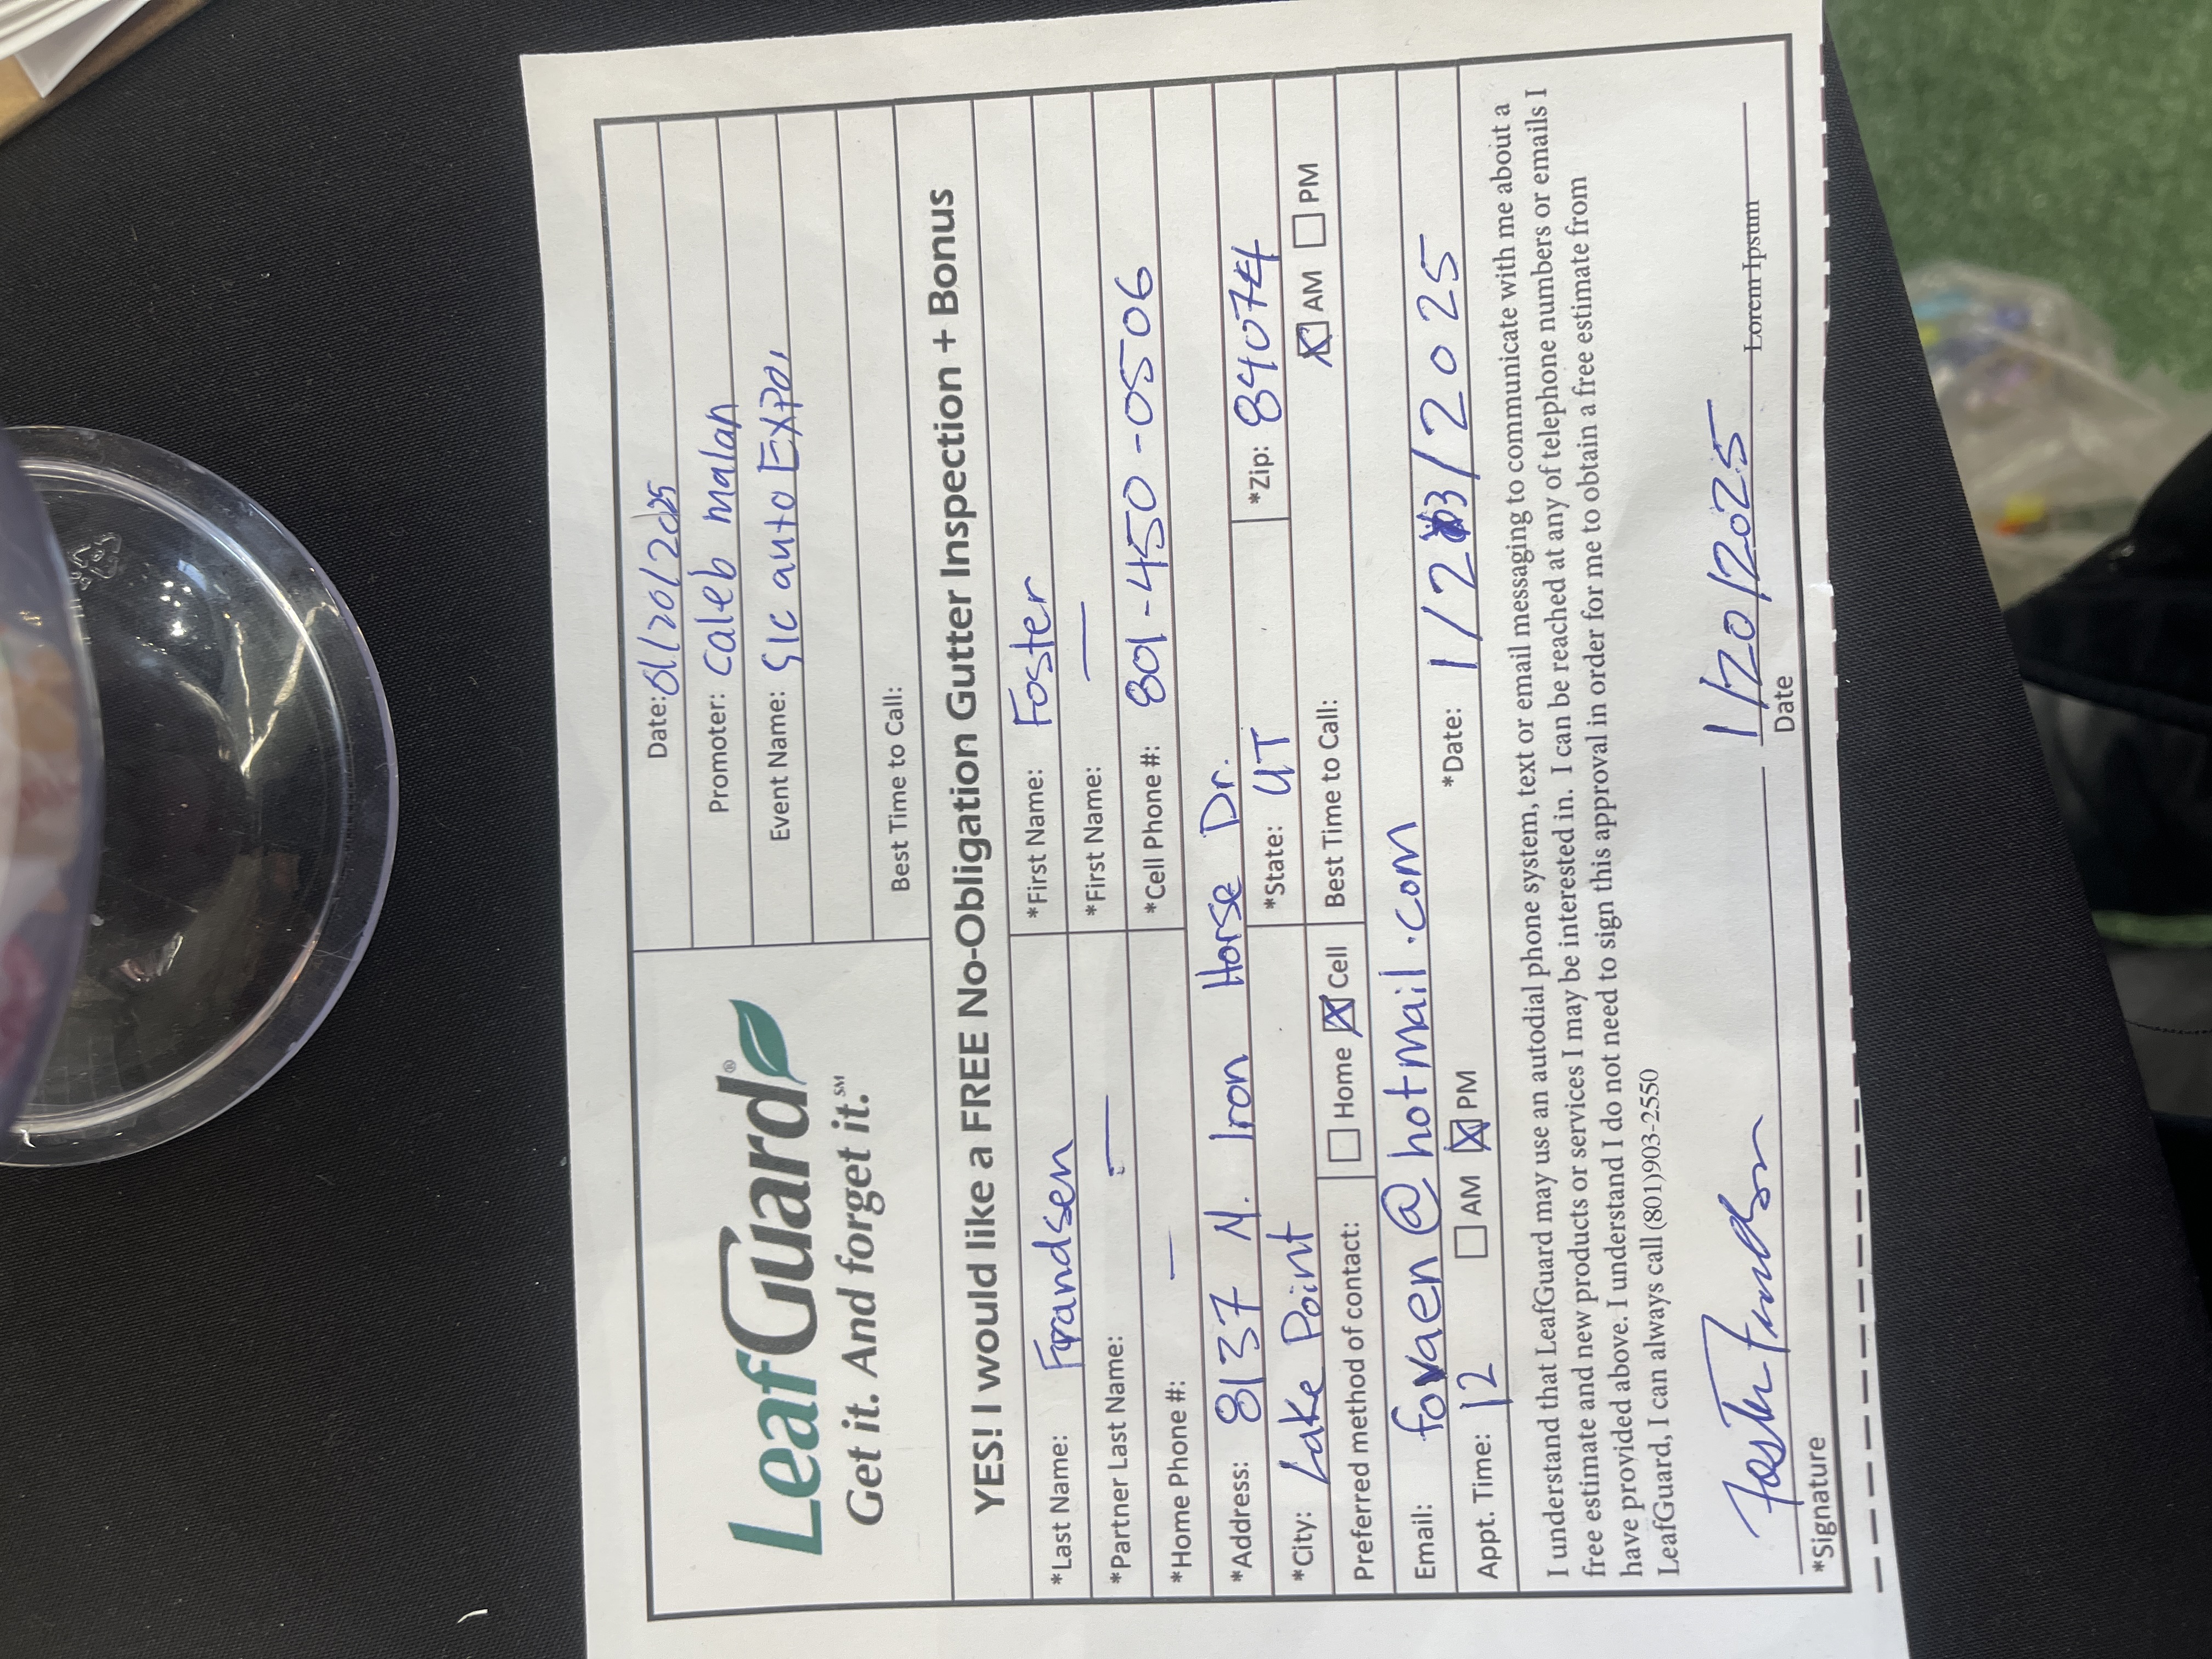 LeafGuard®
Get it. And forget it.℠
Date: 01/20/2025
Promoter: caleb malan
Event Name: Slc auto Expo,
Best Time to Call:
YES! I would like a FREE No-Obligation Gutter Inspection + Bonus
*Last Name: Frandsen
*First Name: Foster
*Partner Last Name: —
*First Name: —
*Home Phone #: —
*Cell Phone #: 801-450-0506
*Address: 8137 N. Iron Horse Dr.
*City: Lake Point
*State: UT
*Zip: 84074
Preferred method of contact: ☐ Home ☒ Cell
Best Time to Call: ☒ AM ☐ PM
Email: fovaen@hotmail.com
Appt. Time: 12 ☐ AM ☒ PM
*Date: 1/23/2025
I understand that LeafGuard may use an autodial phone system, text or email messaging to communicate with me about a
free estimate and new products or services I may be interested in. I can be reached at any of telephone numbers or emails I
have provided above. I understand I do not need to sign this approval in order for me to obtain a free estimate from
LeafGuard, I can always call (801)903-2550
Foster Frandsen
1/20/2025
Lorem Ipsum
*Signature
Date